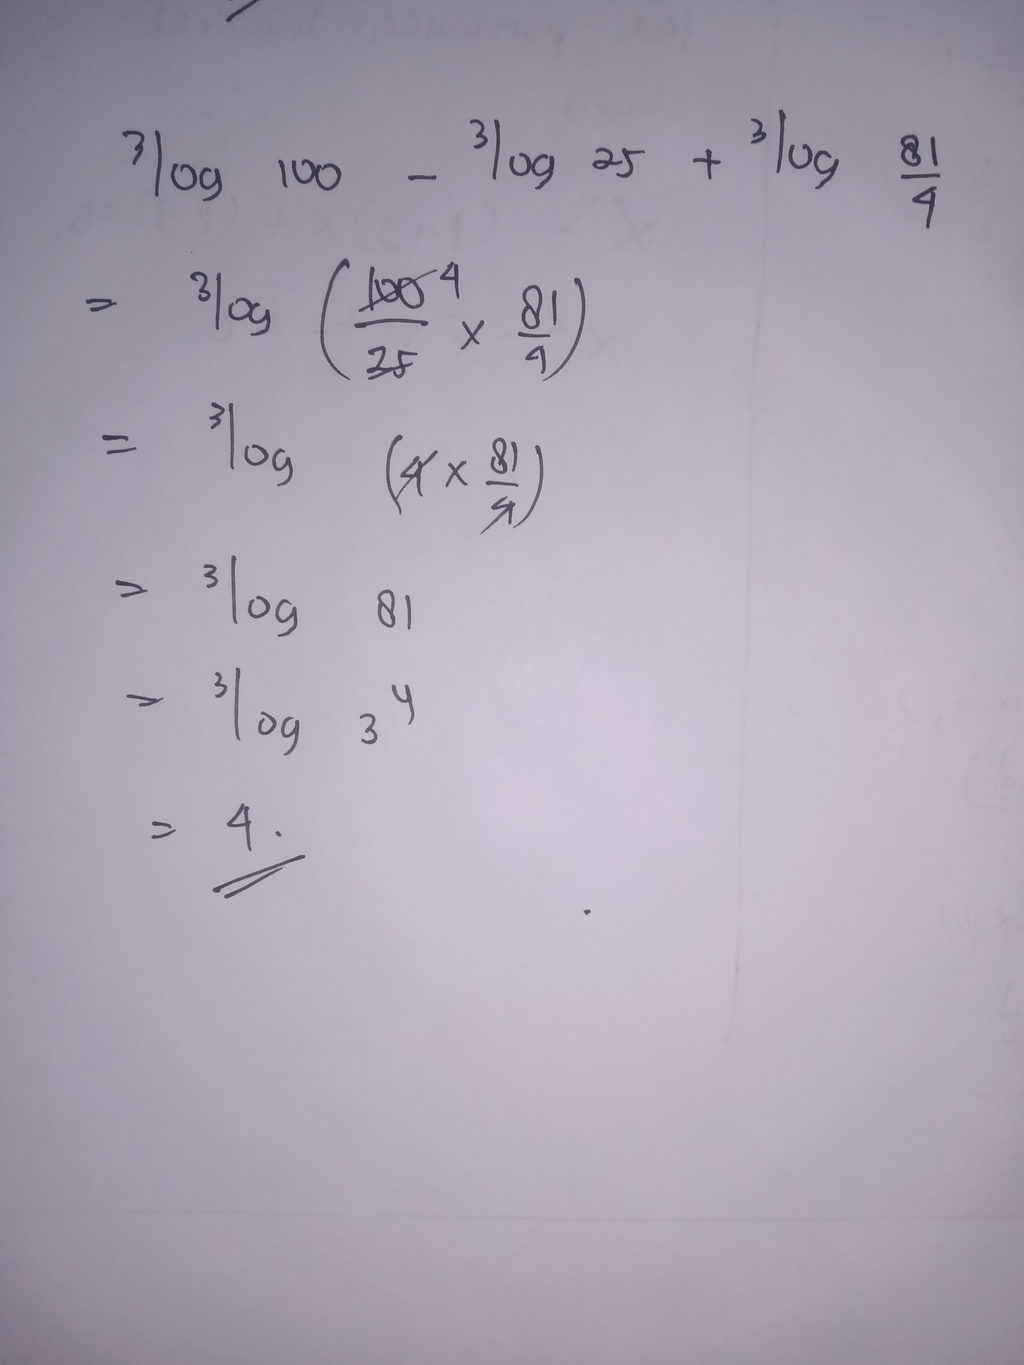 ³log 100 - ³log 25 + ³log 81/4
= ³log (100/25 4 x 81/4)
= ³log (4 x 81/4)
= ³log 81
= ³log 3⁴
= 4.